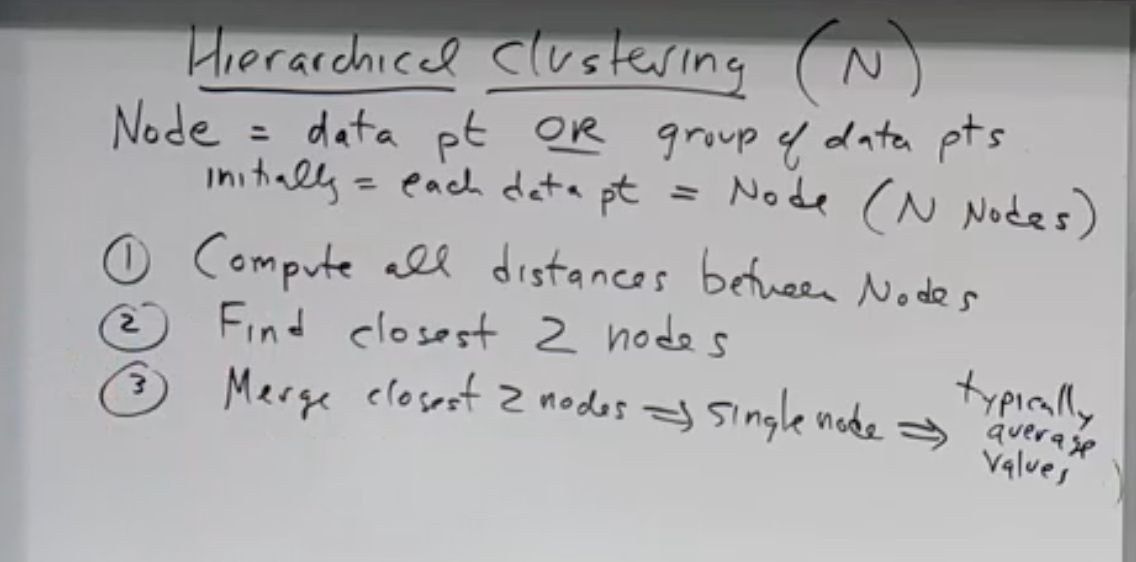 Hierarchical Clustering (N)
Node = data pt OR group of data pts
initially = each data pt = Node (N Nodes)
① Compute all distances between Nodes
② Find closest 2 nodes
③ Merge closest 2 nodes ⇒ single node ⇒ typically
average
values